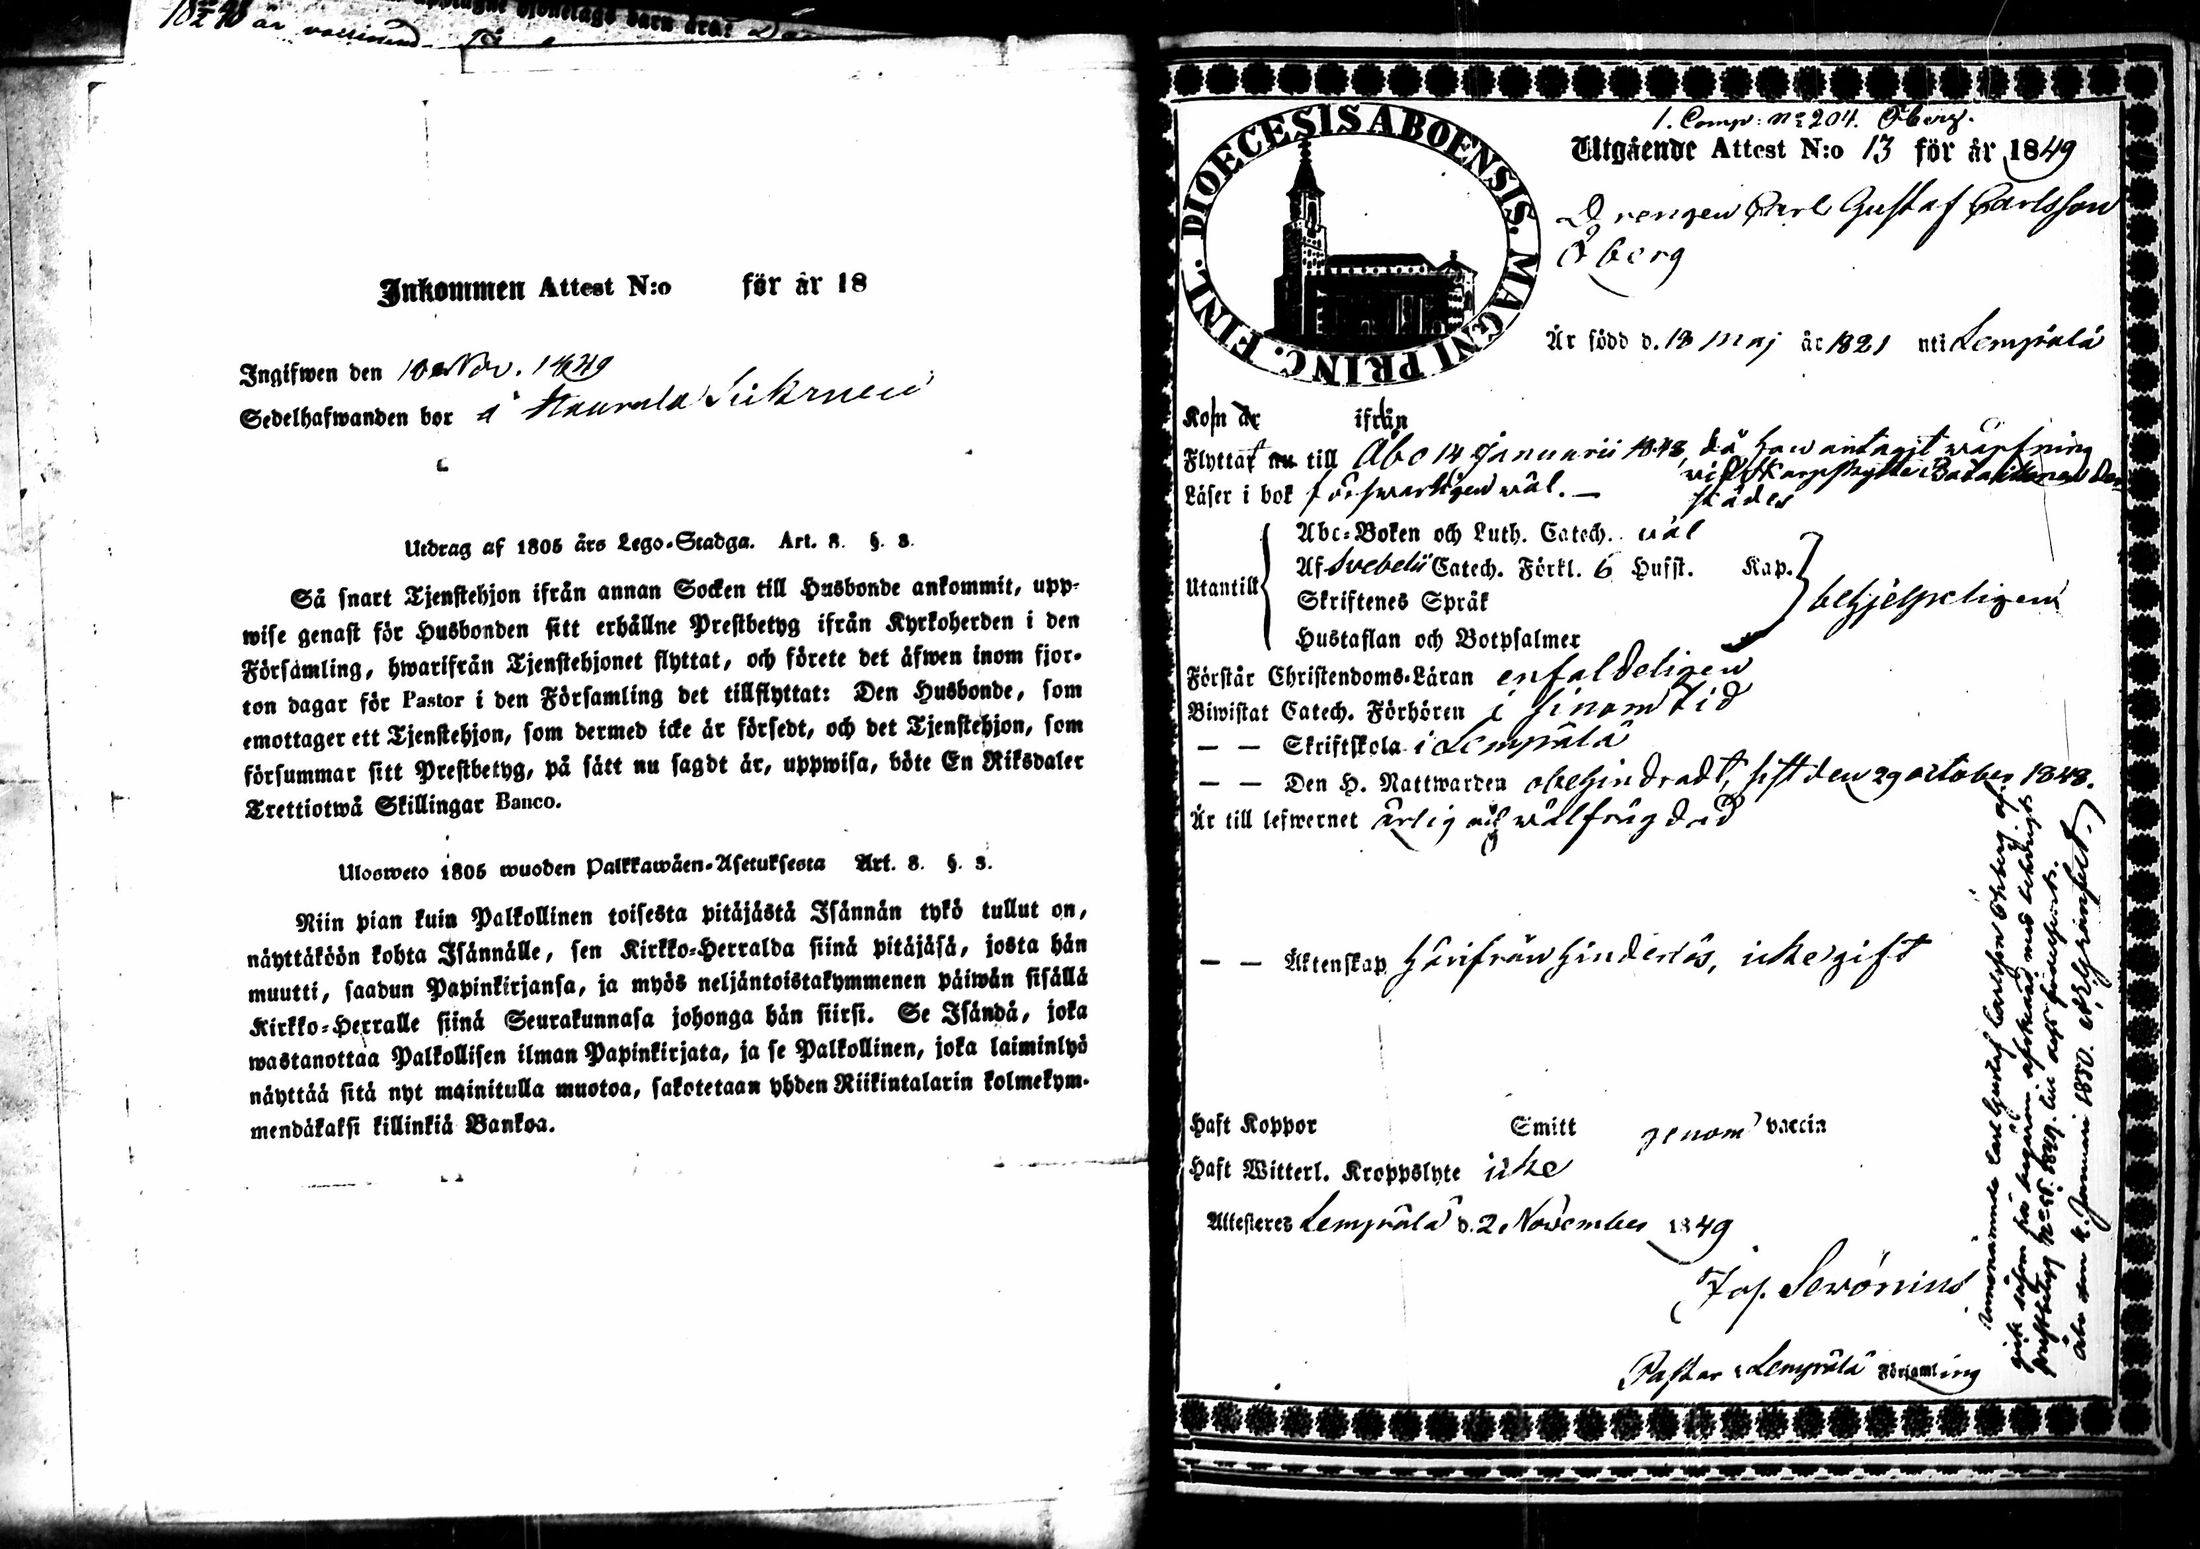 är
Inkommen Attest N:o för år 18
Ingifwen den 10 Nov. 1849
Sedelhafwanden bor å
Utdrag af 1805 års Lego-Stadga. Art. 8. §. 3.
Så snart Tjenstehjon ifrån annan Socken till Husbonde ankommit, upp-
wise genast för Husbonden sitt erhållne Prestbetyg ifrån Kyrkoherden i den
Församling, hwarifrån Tjenstehjonet flyttat, och förete det äfwen inom fjor-
ton dagar för Pastor i den Församling det tillflyttat: Den Husbonde, som
emottager ett Tjenstehjon, som dermed icke är försedt, och det Tjenstehjon, som
försummar sitt Prestbetyg, på sätt nu sagdt är, uppwisa, böte En Riksdaler
Trettiotwå Skillingar Banco.
Ulosweto 1805 wuoden Palkkawäen-Asetuksesta Art. 8. §. 3.
Niin pian kuin Palkollinen toisesta pitäjästä Isännän tykö tullut on,
näyttäköön kohta Isännälle, sen Kirkko-Herralda siinä pitäjäsä, josta hän
muutti, saadun Papinkirjansa, ja myös neljäntoistakymmenen päiwän sisällä
Kirkko-Herralle siinä Seurakunnasa johonga hän siirsi. Se Isändä, joka
wastanottaa Palkollisen ilman Papinkirjata, ja se Palkollinen, joka laiminlyö
näyttää sitä nyt mainitulla muotoa, sakotetaan yhden Riikintalarin kolmekym-
mendäkaksi killinkiä Bankoa.
DIOECESIS ABOENSIS. MAGNI PRINC. FINL.
1. Comp: No 204. Öberg.
Utgående Attest N:o 13 för år 1849
Drengen Carl Gustaf Carlsson
Öberg
Är född d. 13 Maj år 1821 uti Lempälä
Kom år ifrån
Flyttat nu till Åbo 14 Januarii 1848, då han antagit wärfning
wid Skarpskytte Bataillonen der-
Läser i bok förswarligen wäl. — städes
Utantill
Abc-Boken och Luth. Catech. wäl
Af Svebelii Catech. Förkl. 6 Hufst. Kap.
Skriftenes Språk
Hustaflan och Botpsalmer
behjelpeligen
Förstår Christendoms-Läran enfaldeligen
Biwistat Catech. Förhören i sinom tid
— — Skriftskola i Lempälä
— — Den H. Nattwarden obehindradt, sist den 29 october 1848.
Är till lefwernet ärlig och wälfrägdad
— — Äktenskap härifrån hinderlös, icke gift
Haft Koppor Smitt genom vaccin
Haft Witterl. Kroppslyte icke
Attesteres Lempälä d. 2 November 1849
Jos. Serönius
Pastor i Lempälä Församling
Carl Gustaf Carlsson Öhberg af-
gick såsom på begäran afskedad med
prestbetyg No 1849.
Åbo den Januari 1850.